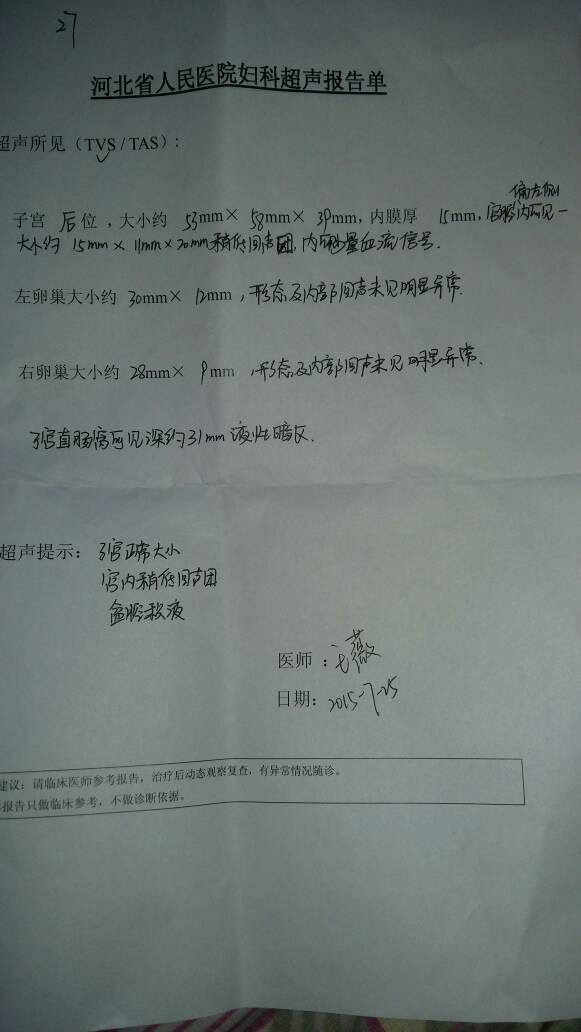 27
河北省人民医院妇科超声报告单
超声所见（TVS / TAS）：
偏左侧
子宫 后位，大小约 53mm× 58mm× 39mm，内膜厚 15mm，宫腔内可见一
大小约 15mm × 11mm × 20mm 稍低回声团，内可见少量血流信号．
左卵巢大小约 30mm× 12mm，形态及内部回声未见明显异常．
右卵巢大小约 28mm× 9mm，形态及内部回声未见明显异常．
子宫直肠窝可见深约31mm 液性暗区．
超声提示：子宫正常大小
宫内稍低回声团
盆腔积液
医师：薇
日期：2015-7-25
建议：请临床医师参考报告，治疗后动态观察复查，有异常情况随诊。
报告只做临床参考，不做诊断依据。